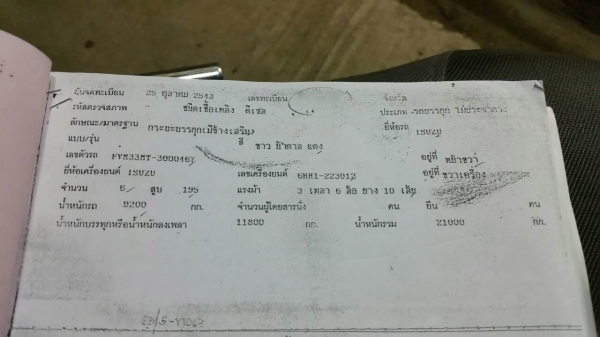 วันจดทะเบียน 25 ตุลาคม 2543 เลขทะเบียน จังหวัด
รหัสตรวจสภาพ ชนิดเชื้อเพลิง ดีเซล ประเภท -รถบรรทุก ไม่ประจำทาง
ลักษณะ/มาตรฐาน กระบะบรรทุก(มีข้างเสริม) ยี่ห้อรถ ISUZU
แบบ/รุ่น สี ขาว น้ำตาล แดง
เลขตัวรถ FVM33MT-3000467 อยู่ที่ หน้าขวา
ยี่ห้อเครื่องยนต์ ISUZU เลขเครื่องยนต์ 6HH1-223012 อยู่ที่ ขวาเครื่อง
จำนวน 6 สูบ 195 แรงม้า 3 เพลา 6 ล้อ ยาง 10 เส้น
น้ำหนักรถ 9200 กก. จำนวนผู้โดยสารนั่ง คน ยืน คน
น้ำหนักบรรทุกหรือน้ำหนักลงเพลา 11800 กก. น้ำหนักรวม 21000 กก.